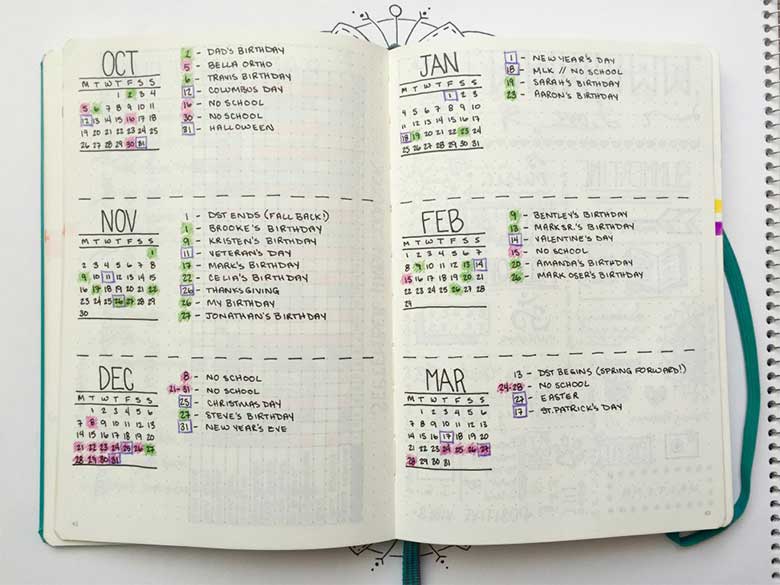 OCT
M T W T F S S
1 2 3 4
5 6 7 8 9 10 11
12 13 14 15 16 17 18
19 20 21 22 23 24 25
26 27 28 29 30 31
2 - DAD'S BIRTHDAY
5 - BELLA ORTHO
6 - TRAVIS BIRTHDAY
12 - COLUMBUS DAY
16 - NO SCHOOL
30 - NO SCHOOL
31 - HALLOWEEN
NOV
M T W T F S S
1
2 3 4 5 6 7 8
9 10 11 12 13 14 15
16 17 18 19 20 21 22
23 24 25 26 27 28 29
30
1 - DST ENDS (FALL BACK!)
1 - BROOKE'S BIRTHDAY
9 - KRISTEN'S BIRTHDAY
11 - VETERAN'S DAY
17 - MARK'S BIRTHDAY
22 - CELIA'S BIRTHDAY
26 - THANKSGIVING
26 - MY BIRTHDAY
27 - JONATHAN'S BIRTHDAY
DEC
M T W T F S S
1 2 3 4 5 6
7 8 9 10 11 12 13
14 15 16 17 18 19 20
21 22 23 24 25 26 27
28 29 30 31
8 - NO SCHOOL
21-31 - NO SCHOOL
25 - CHRISTMAS DAY
27 - STEVE'S BIRTHDAY
31 - NEW YEAR'S EVE
JAN
M T W T F S S
1 2 3
4 5 6 7 8 9 10
11 12 13 14 15 16 17
18 19 20 21 22 23 24
25 26 27 28 29 30 31
1 - NEW YEAR'S DAY
18 - MLK // NO SCHOOL
19 - SARAH'S BIRTHDAY
23 - AARON'S BIRTHDAY
FEB
M T W T F S S
1 2 3 4 5 6 7
8 9 10 11 12 13 14
15 16 17 18 19 20 21
22 23 24 25 26 27 28
29
9 - BENTLEY'S BIRTHDAY
13 - MARK SR.'S BIRTHDAY
14 - VALENTINE'S DAY
15 - NO SCHOOL
20 - AMANDA'S BIRTHDAY
26 - MARK OSER'S BIRTHDAY
MAR
M T W T F S S
1 2 3 4 5 6
7 8 9 10 11 12 13
14 15 16 17 18 19 20
21 22 23 24 25 26 27
28 29 30 31
13 - DST BEGINS (SPRING FORWARD!)
24-28 - NO SCHOOL
27 - EASTER
17 - ST. PATRICK'S DAY